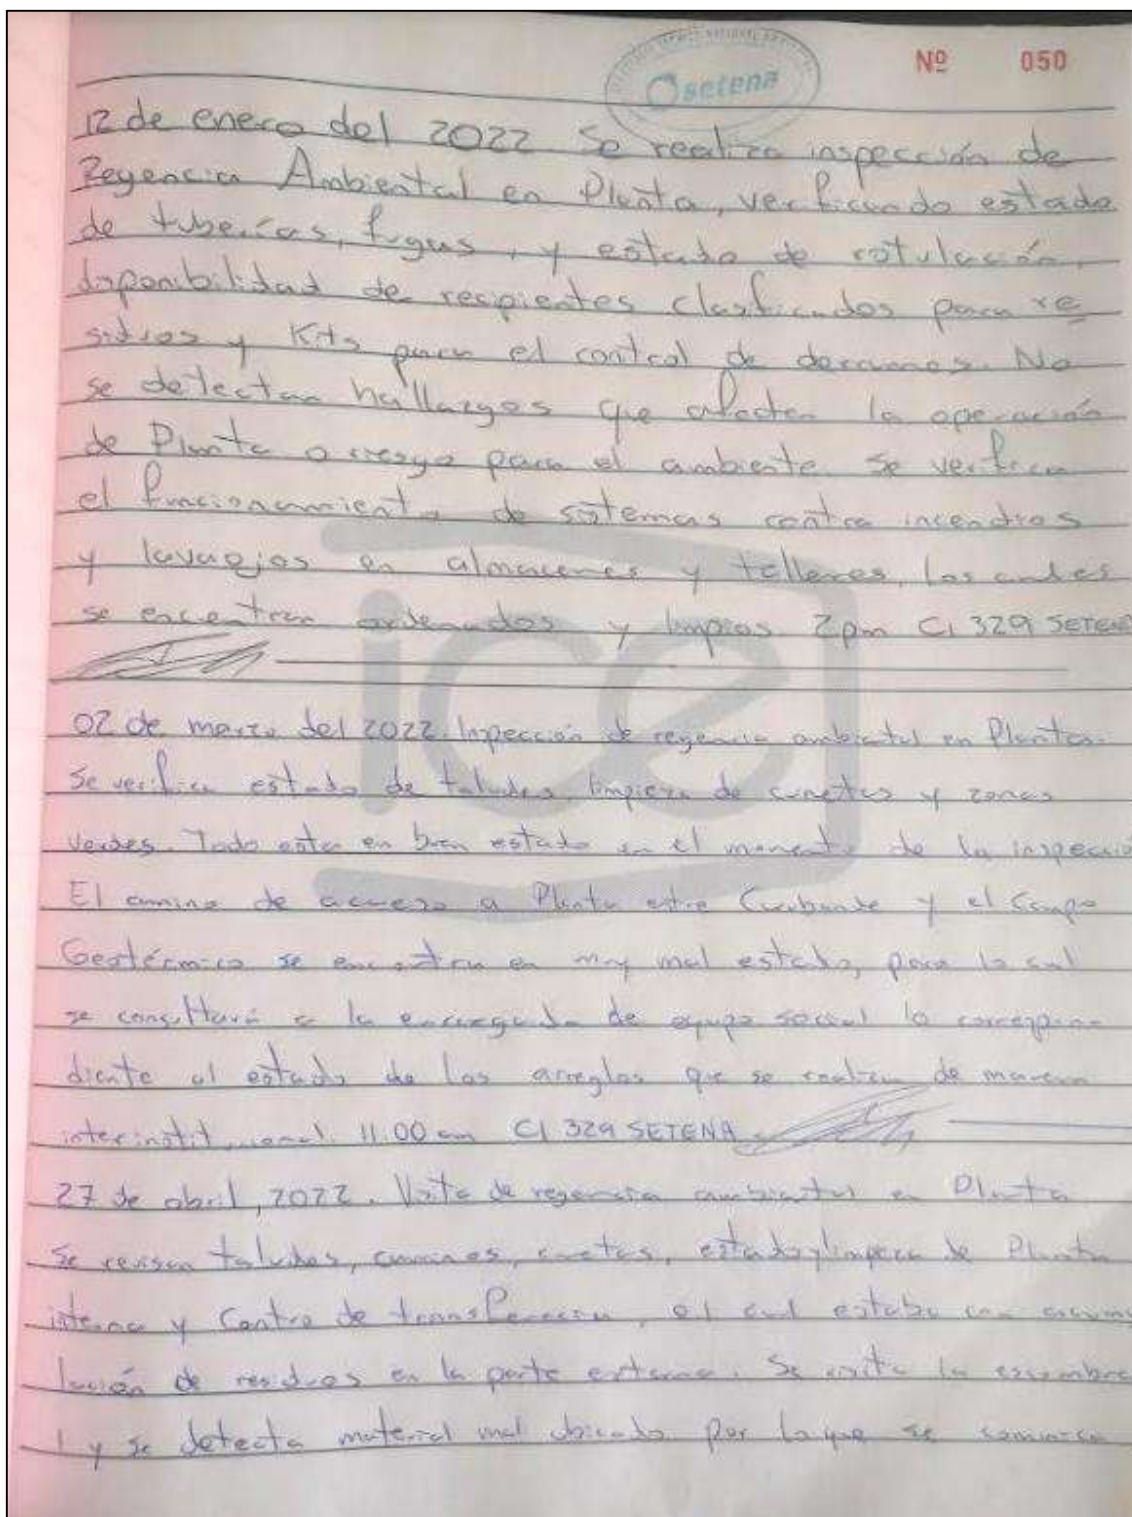 setena
Nº 050
12 de enero del 2022 Se realiza inspección de
Regencia Ambiental en Planta, verificando estado
de tuberías, fugas, y estado de rotulación,
disponibilidad de recipientes clasificados para re
siduos y Kits para el control de derrames. No
se detectan hallazgos que afecten la operación
de Planta o riesgo para el ambiente. Se verifica
el funcionamiento de sistemas contra incendios
y lavaojos en almacenes y talleres, los cuales
se encentran ordenados y limpios 2pm CI 329 SETENA
ice
02 de marzo del 2022. Inspección de regencia ambiental en Planta.
Se verifica estado de taludes, limpieza de cunetas y zonas
verdes. Todo esta en buen estado en el momento de la inspección
El camino de acceso a Planta entre Curubande y el Campo
Geotérmico se encuentra en muy mal estado, para lo cual
se consultará a la encargada de equipo social lo correspon-
diente al estado de los arreglos que se realizan de manera
interinstitucional. 11:00 am CI 329 SETENA
27 de abril, 2022. Visita de regencia ambiental en Planta
Se revisan taludes, caminos, cunetas, estado y limpieza de Planta
interna y Centro de transferencia, el cual estaba con acumu
lación de residuos en la parte externa. Se visita la escombrera
1 y se detecta material mal ubicado por lo que se comunica